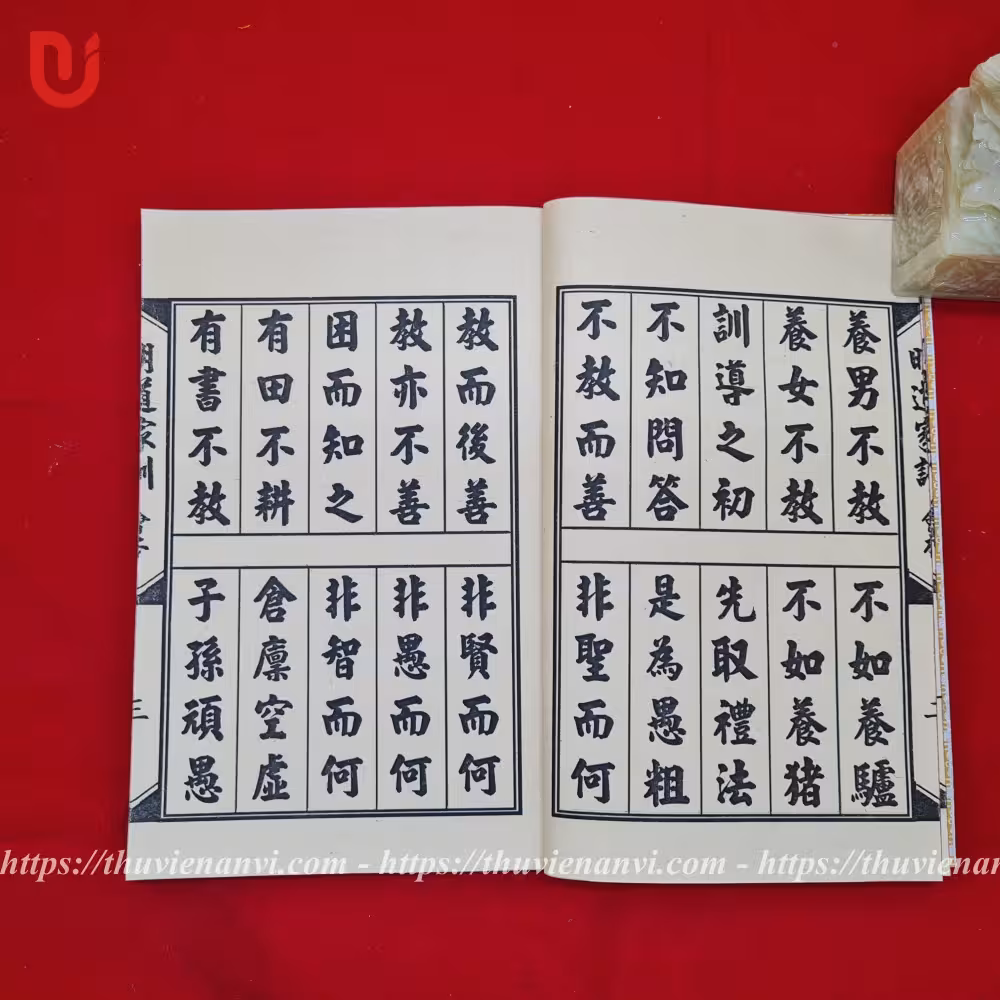 養男不教
不如養驢
養女不教
不如養猪
訓導之初
先取禮法
不知問答
是為愚粗
不教而善
非聖而何
教而後善
非賢而何
教亦不善
非愚而何
困而知之
非智而何
有田不耕
倉廩空虛
有書不教
子孫頑愚
明道家訓
二
明道家訓
三
https://thuvienanvi.com - https://thuvienanvi.com - https://thuvienanv